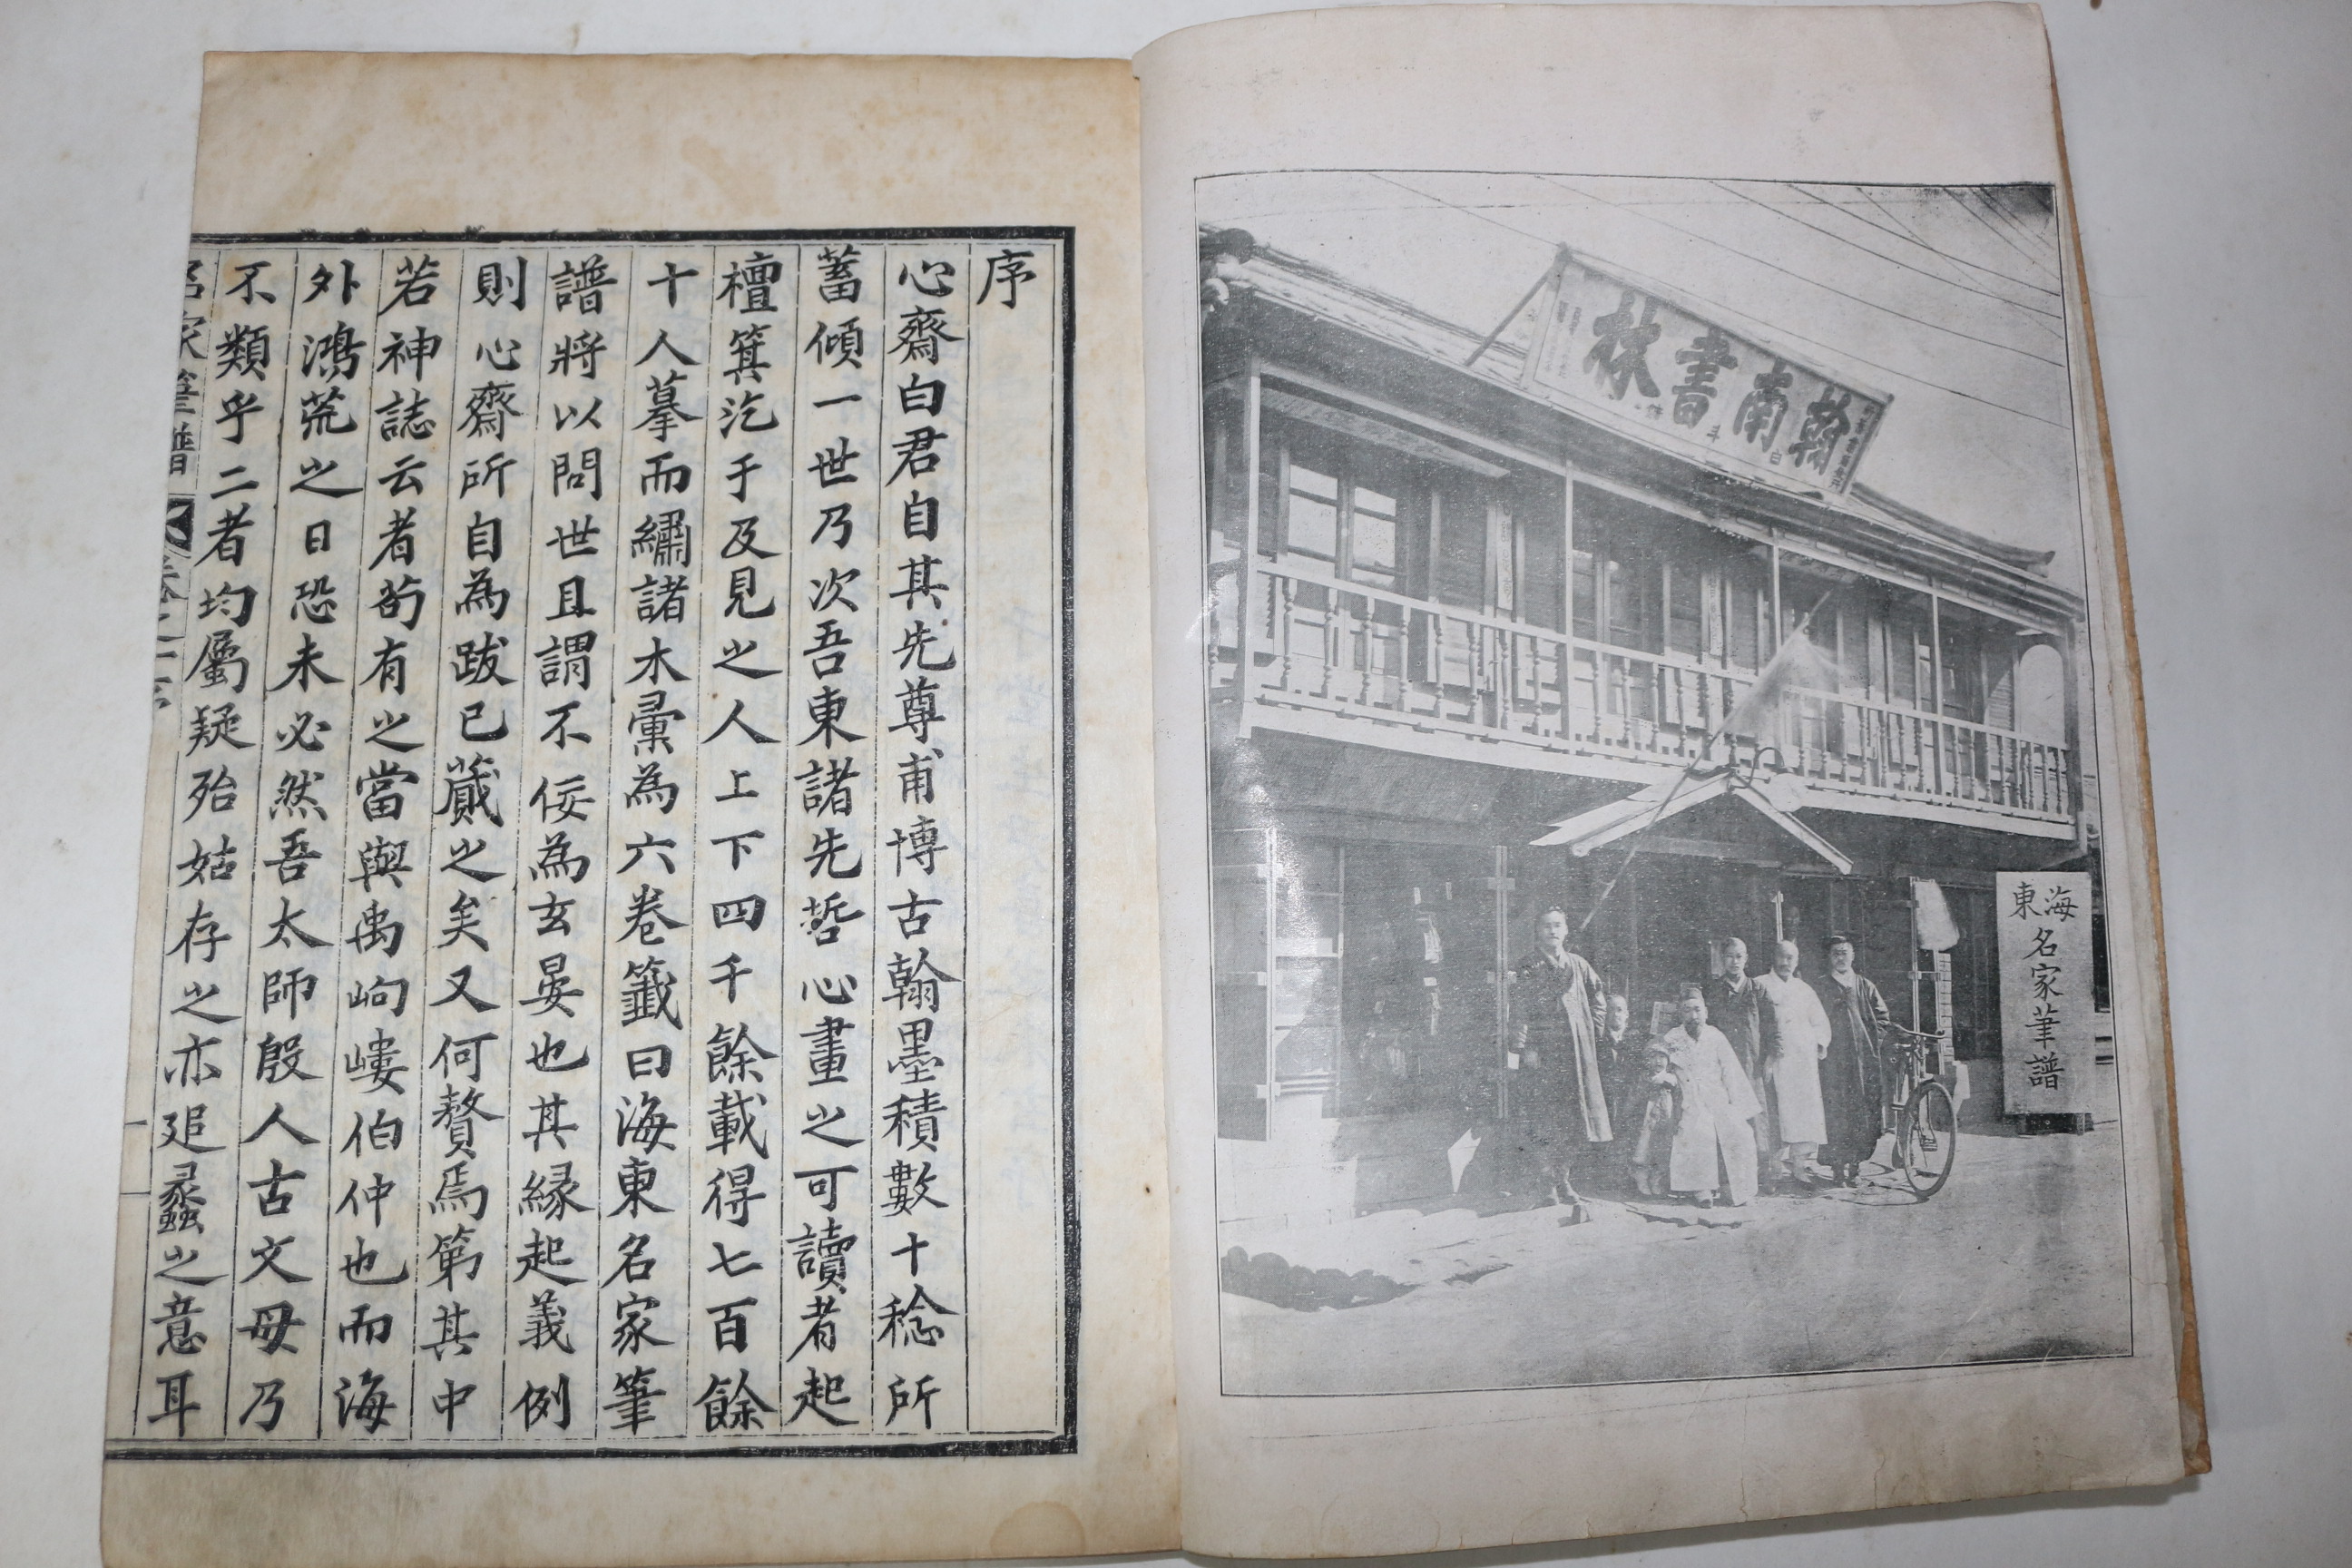 翰南書林
海東
名家筆譜
序
心齋白君自其先尊甫博古翰墨積數十稔所
蓄傾一世乃次吾東諸先哲心畫之可讀者起
檀箕汔于及見之人上下四千餘載得七百餘
十人摹而繡諸木彙為六卷籤曰海東名家筆
譜將以問世且謂不佞為玄晏也其緣起義例
則心齋所自為跋已蕆之矣又何贅焉第其中
若神誌云者苟有之當與禹岣嶁伯仲也而海
外鴻荒之日恐未必然吾太師殷人古文毋乃
不類乎二者均屬疑殆姑存之亦追蠡之意耳
名家筆譜